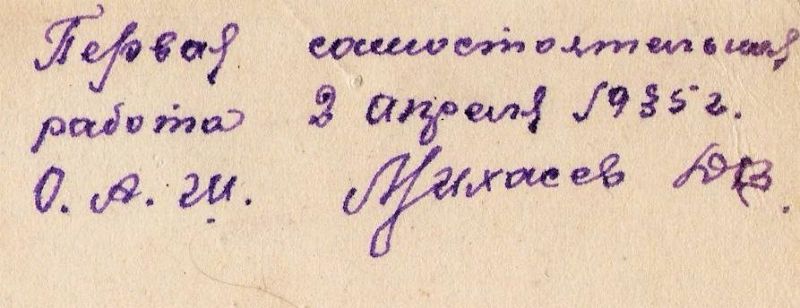 Первая самостоятельная
работа 2 апреля 1935г.
О. А. Ш. Михасев ДВ.